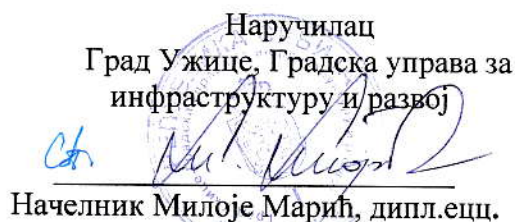 Наручилац
Град Ужице, Градска управа за
инфраструктуру и развој
Начелник Милоје Марић, дипл.ецц.